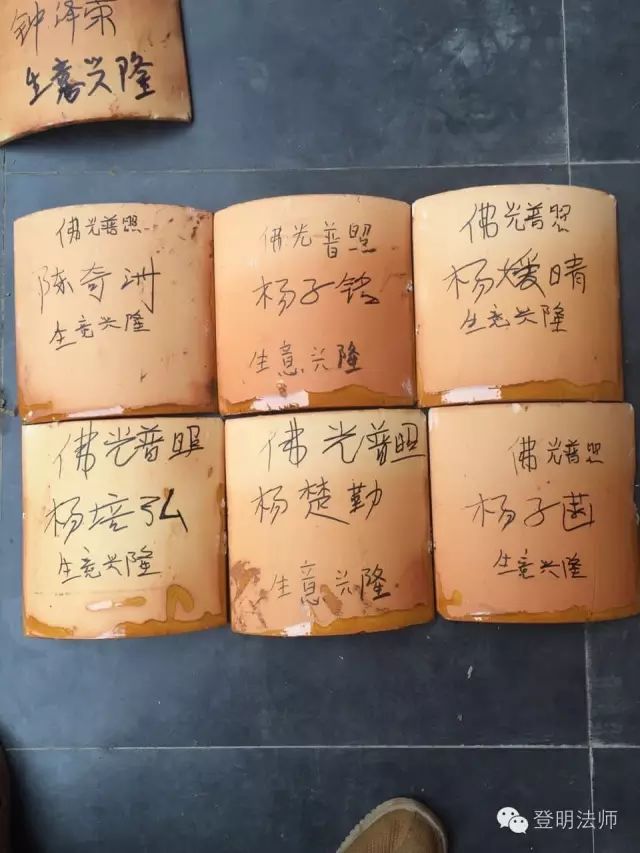 钟泽荣
生意兴隆
佛光普照
陈奇洲
生意兴隆
佛光普照
杨子铭
生意兴隆
佛光普照
杨媛晴
生意兴隆
佛光普照
杨培弘
生意兴隆
佛光普照
杨楚勤
生意兴隆
佛光普照
杨子茵
生意兴隆
登明法师